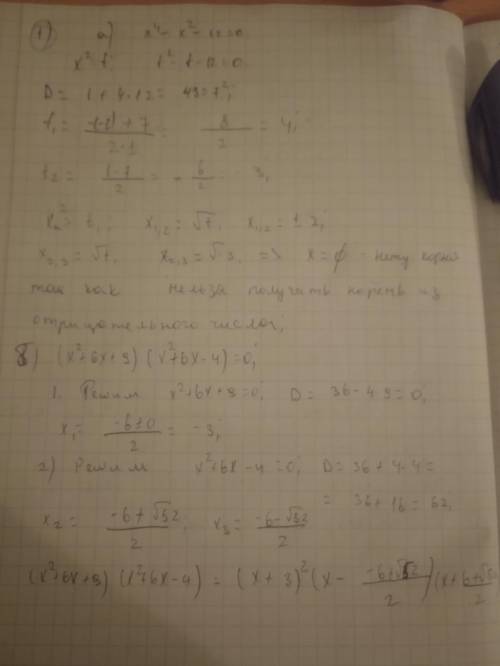 1) а) x⁴ - x² - 12 = 0
x² = t; t² - t - 12 = 0
D = 1 + 4·12 = 49 = 7²;
t₁ = (-(-1) + 7)/(2·1) = 8/2 = 4;
t₂ = (1-7)/2 = -6/2 = -3;
x² = t, x₁,₂ = √t, x₁,₂ = ± 2;
x₂,₃ = √t, x₂,₃ = √-3, => x = ∅ - нету корня
так как нельзя получать корень из
отрицательного числа;
б) (x²+6x+9)(x²+6x-4)=0;
1. Решим x²+6x+9=0; D = 36-4·9=0;
x₁ = (-6±0)/2 = -3;
2) Решим x²+6x-4=0; D=36+4·4=
= 36+16=52,
x₂ = (-6+√52)/2; x₃ = (-6-√52)/2
(x²+6x+9)(x²+6x-4) = (x+3)²(x - (-6+√52)/2)(x + (6+√52)/2